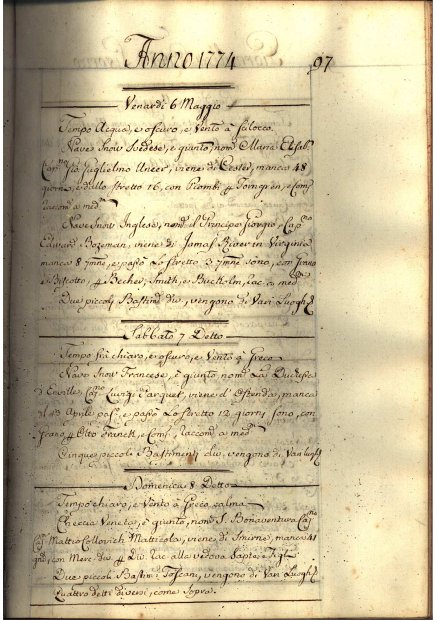 Anno 1774
97
Venardi 6 Maggio
Tempo Acqua, e oscuro, e Vento à Scilocco.
Nave Snow Svedese, è giunto, nom. Maria Elisab.
Cap.no Gio. Guglielmo Uncer, viene di Cester, manca 48
giorni, e dallo stretto 16, con Piombi p Torngren, e Comp.
raccom. a med.mo
Nave Snow Inglese, nom. il Principe Giorgio, Cap.no
Edward Bozeman, viene di Jamas River in Virginia
manca 8 7mne, e passò Lo stretto 3 7mne sono, con Grano
e Biscotto p Becher, Smith, e rac. a med.
Due piccoli Bastim.ti div. vengono di Vari Luoghi
Sabbato 7 Detto
Tempo frà chiaro, e oscuro, e Vento à Greco
Nave Snow Francese, è giunto, nom. La Duchesse
d' Enville, Cap.no Luvigi Jarquet, viene d'Ostenda, manca
Aprile pas. e passò Lo stretto 12 giorni sono, con
Grano p Otto Franck, e Comp. Raccom. a med.
Cinque piccoli Bastimenti div. vengono di Vari Luoghi
Domenica 8 Detto
Tempo chiaro, e Vento à Greco calma
Checcia Veneta, è giunto, nom. S. Bonaventura Cap.
Matteo Collovich Mattezola, viene di Smirne, manca 41
gni, con Merc. div. p Div. rac. alla vedova Sapte, e Figli
Due piccoli Bastim.ti Toscani, vengono di Vari Luoghi
Quattro detti diversi, come Sopra.